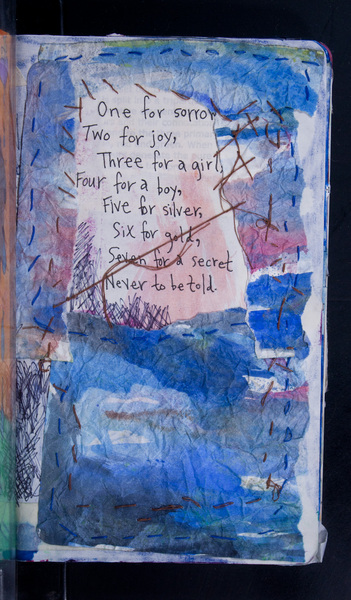 One for sorrow
Two for joy,
Three for a girl,
Four for a boy,
Five for silver,
Six for gold,
Seven for a secret
Never to be told.